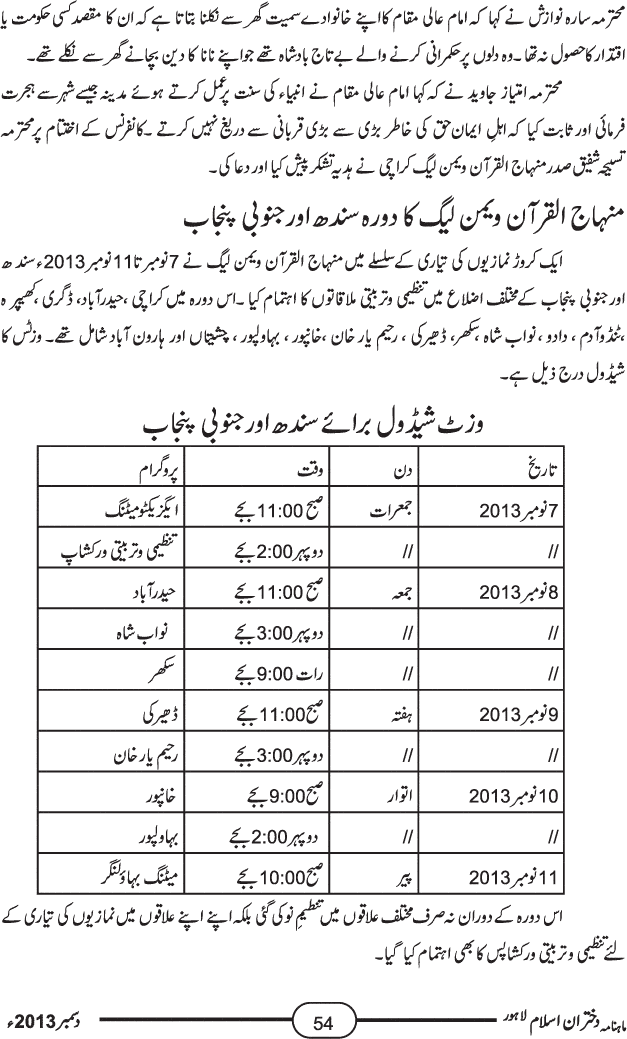 محترمہ سارہ نوازش نے کہا کہ امام عالی مقام کا اپنے خانوادے سمیت گھر سے نکلنا بتاتا ہے کہ ان کا مقصد کسی حکومت یا
اقتدار کا حصول نہ تھا۔ وہ دلوں پر حکمرانی کرنے والے بے تاج بادشاہ تھے جو اپنے نانا کا دین بچانے گھر سے نکلے تھے۔
محترمہ امتیاز جاوید نے کہ کہا امام عالی مقام نے انبیاء کی سنت پر عمل کرتے ہوئے مدینہ جیسے شہر سے ہجرت
فرمائی اور ثابت کیا کہ اہل ایمان حق کی خاطر بڑی سے بڑی قربانی سے دریغ نہیں کرتے۔ کانفرنس کے اختتام پر محترمہ
تسبیحہ شفیق صدر منہاج القرآن ویمن لیگ کراچی نے ہدیہ تشکر پیش کیا اور دعا کی۔
منہاج القرآن ویمن لیگ کا دورہ سندھ اور جنوبی پنجاب
ایک کروڑ نمازیوں کی تیاری کے سلسلے میں منہاج القرآن ویمن لیگ نے 7 نومبر تا 11 نومبر 2013ء سندھ
اور جنوبی پنجاب کے مختلف اضلاع میں تنظیمی و تربیتی ملاقاتوں کا اہتمام کیا۔ اس دورہ میں کراچی، حیدرآباد، ڈگری، کھپرہ
، ٹنڈوآدم، دادو، نواب شاہ، سکھر، ڈھیرکی، رحیم یار خان، خانپور، بہاولپور، چشتیاں اور ہارون آباد شامل تھے۔ وزٹس کا
شیڈول درج ذیل ہے۔
وزٹ شیڈول برائے سندھ اور جنوبی پنجاب
تاریخ دن وقت پروگرام
7 نومبر 2013 جمعرات صبح 11:00 بجے ایگزیکٹو میٹنگ
// // دوپہر 2:00 بجے تنظیمی و تربیتی ورکشاپ
8 نومبر 2013 جمعہ صبح 11:00 بجے حیدرآباد
// // دوپہر 3:00 بجے نواب شاہ
// // رات 9:00 بجے سکھر
9 نومبر 2013 ہفتہ صبح 11:00 بجے ڈھیرکی
// // دوپہر 3:00 بجے رحیم یار خان
10 نومبر 2013 اتوار صبح 9:00 بجے خانپور
// // دوپہر 2:00 بجے بہاولپور
11 نومبر 2013 پیر صبح 10:00 بجے میٹنگ بہاؤلنگر
اس دورہ کے دوران نہ صرف مختلف علاقوں میں تنظیم نو کی گئی بلکہ اپنے اپنے علاقوں میں نمازیوں کی تیاری کے
لئے تنظیمی و تربیتی ورکشاپس کا بھی اہتمام کیا گیا۔
ماہنامہ دختران اسلام لاہور 54 دسمبر 2013ء